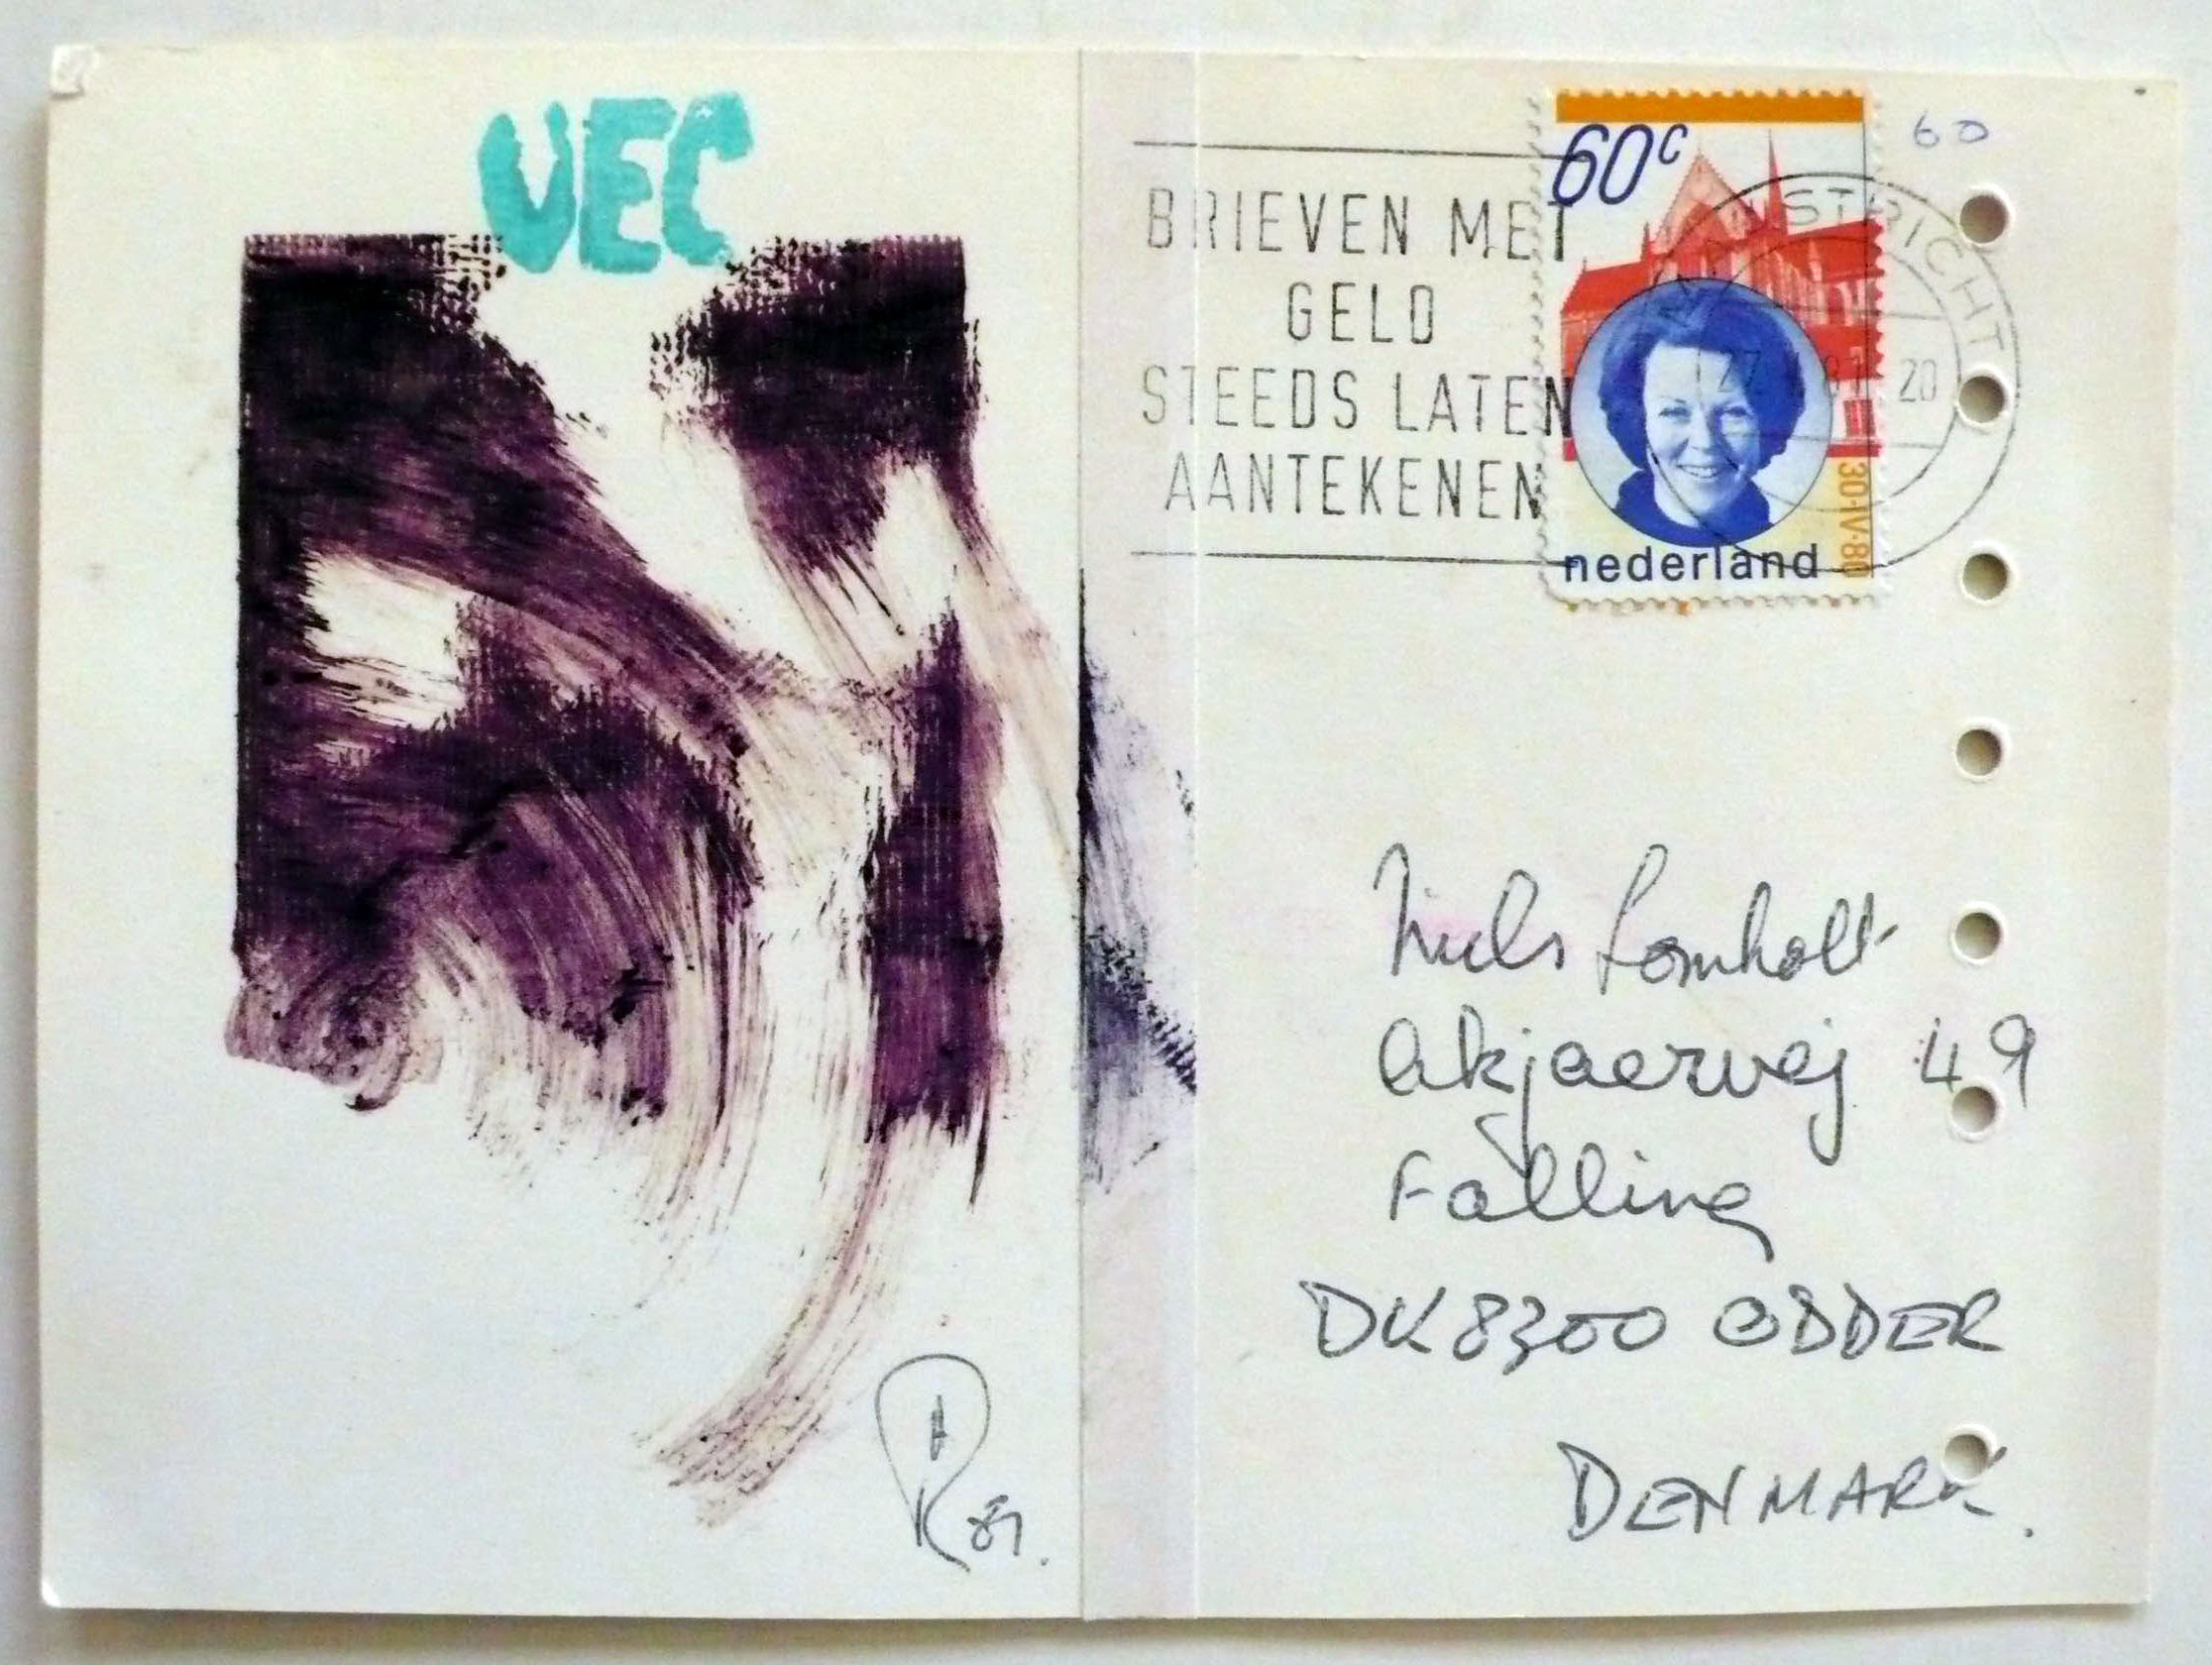 UEC
BRIEVEN MET
GELD
STEEDS LATEN
AANTEKENEN
60c
60
MAASTRICHT
20
30·IV·80
nederland
Niels Lomholt
Akjaervej 49
Falling
DK 8300 ODDER
DENMARK.
R 81.